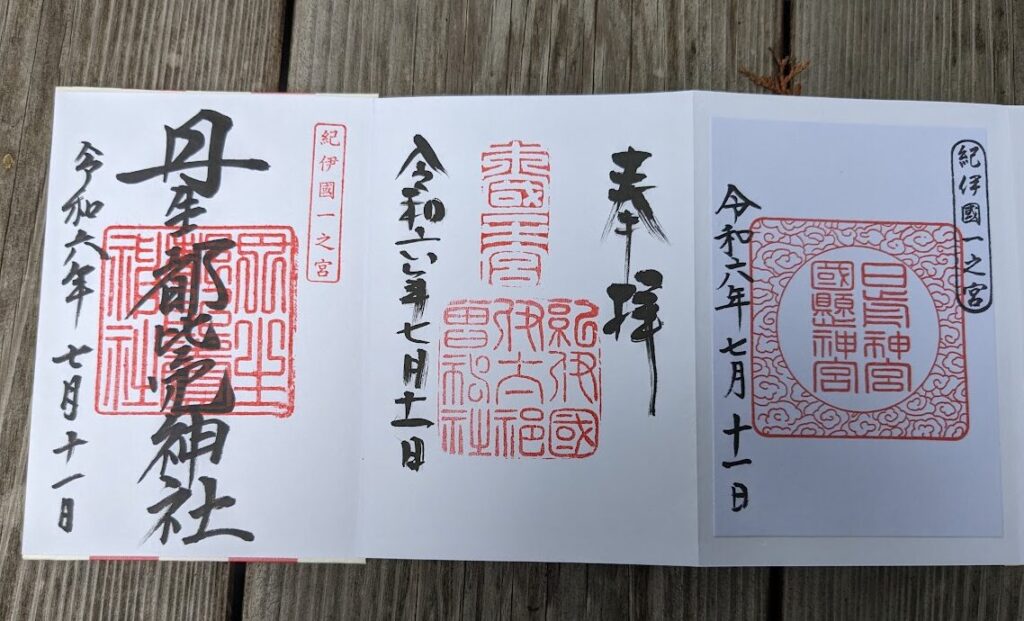 紀伊國一之宮
日前神宮
國懸神宮
令和六年七月十一日
奉拝
紀伊國
伊太祁
曽神社
令和六年七月十一日
紀伊國一之宮
丹生都比売神社
令和六年七月十一日